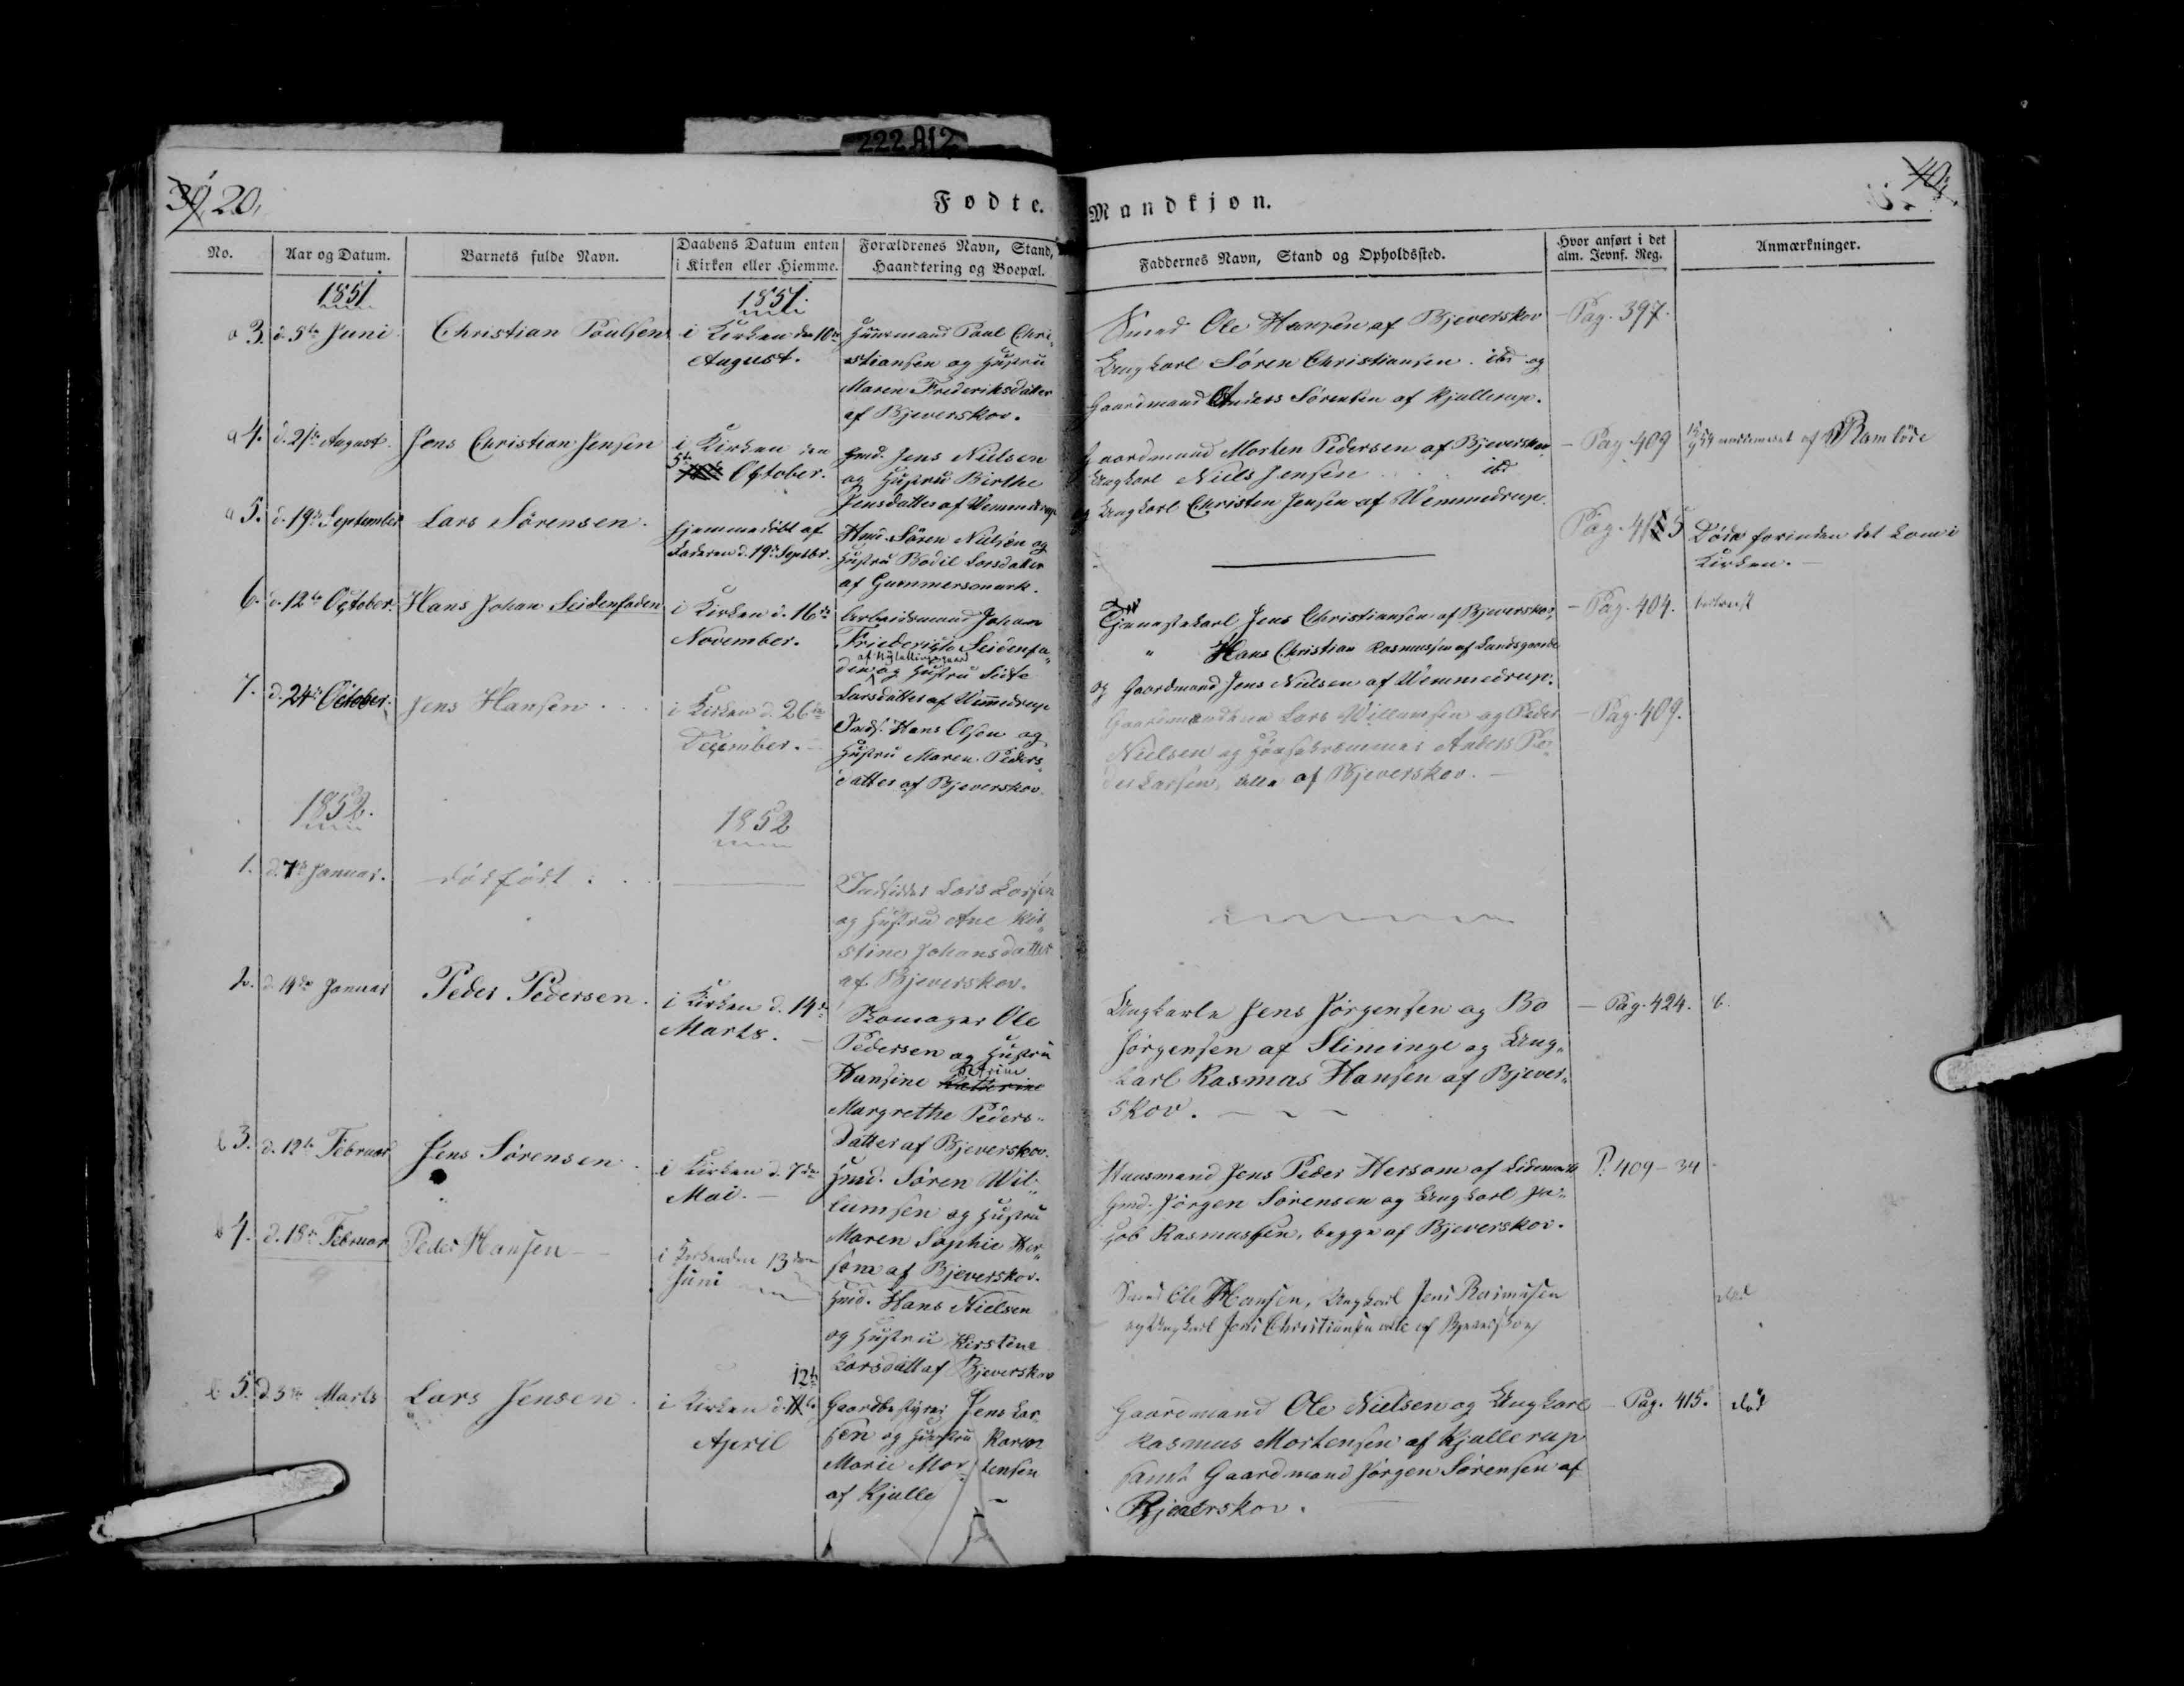 222 A12
39, 20,
Fødte.
Mandkjøn.
40,
No.
Aar og Datum.
Barnets fulde Navn.
Daabens Datum enten
i Kirken eller Hiemme.
Forældrenes Navn, Stand,
Haandtering og Boepæl.
Faddernes Navn, Stand og Opholdssted.
Hvor anført i det
alm. Jevnf. Reg.
Anmærkninger.
1851
1851.
3. d. 5te Juni
Christian Poulsen
i Kirken den 10de
August.
Huusmand Poul Chri-
stiansen og Hustru
Maren Frederiksdatter
af Bjeverskov.
Smed Ole Hansen af Bjeverskov
Ungkarl Søren Christiansen ibd og
Gaardmand Anders Sørensen af Kjullerup.
Pag. 397.
4. d. 21de August.
Jens Christian Jensen
i Kirken den
5te October.
Gmd. Jens Nielsen
og Hustru Birthe
Jensdatter af Vemmedrup
Gaardmand Morten Pedersen af Bjeverskov
Ungkarl Niels Jensen ibd
og Ungkarl Christen Jensen af Vemmedrup.
Pag 409
af Ramløse
5. d. 19de September
Lars Sørensen.
Hjemmedøbt af
Faderen d. 19de Septbr.
Hmd. Søren Nielsen og
Hustru Bodil Larsdatter
af Gummersmark.
Pag. 415
Døde forinden det kom i
Kirken.
6. d. 12te October.
Hans Johan Seidenfaden
i Kirken d. 16de
November.
Arbeidsmand Johan
Friederich Seidenfa-
den og Hustru Sidse
Larsdatter af Vemmedrup
Tjenestekarl Jens Christiansen af Bjeverskov,
" Hans Christian Rasmussen af Lundsgaarde
og Gaardmand Jens Nielsen af Vemmedrup.
Pag. 404.
7. d. 24de October.
Jens Hansen
i Kirken d. 26de
December.
Inds. Hans Olsen og
Hustru Maren Peders-
datter af Bjeverskov.
Gaardmændene Lars Willumsen og Peder
Nielsen og Anders Pe-
der Larsen, alle af Bjeverskov.
Pag. 409.
1852.
1852
1. d. 7de Januar.
dødfødt
Indsidder Lars Larsen
og Hustru Ane Kir-
stine Johansdatter
af Bjeverskov.
2. d. 19de Januar
Peder Pedersen.
i Kirken d. 14de
Marts.
Skomager Ole
Pedersen og Hustru
Hansine Cathrine
Margrethe Peders-
datter af Bjeverskov.
Ungkarle Jens Jørgensen og Bo
Jørgensen af Slimminge og Ung-
karl Rasmus Hansen af Bjever-
skov.
Pag. 424.
3. d. 12te Februar
Jens Sørensen
i Kirken d. 7de
Mai.
Hmd. Søren Wil-
lumsen og Hustru
Maren Sophie Her-
som af Bjeverskov.
Huusmand Jens Peder Hersom af Lidemark
Gmd. Jørgen Sørensen og Ungkarl Ja-
cob Rasmussen, begge af Bjeverskov.
P. 409 - 34
4. d. 18de Februar
Peder Hansen
i Kirken den 13de
Juni
Hmd. Hans Nielsen
og Hustru Kirstine
Larsdatt af Bjeverskov
Smed Ole Hansen, Ungkarl Jens Rasmussen
og Ungkarl Jens Christiansen alle af Bjeverskov
død
5. d. 3die Marts
Lars Jensen
12te
i Kirken d. 11te
April
Gaardbestyrer Jens Lar-
sen og Hustru Karen
Marie Mortensen
af Kjulle
Gaardmand Ole Nielsen og Ungkarl
Rasmus Mortensen af Kjullerup
samt Gaardmand Jørgen Sørensen af
Bjeverskov.
Pag. 415.
død